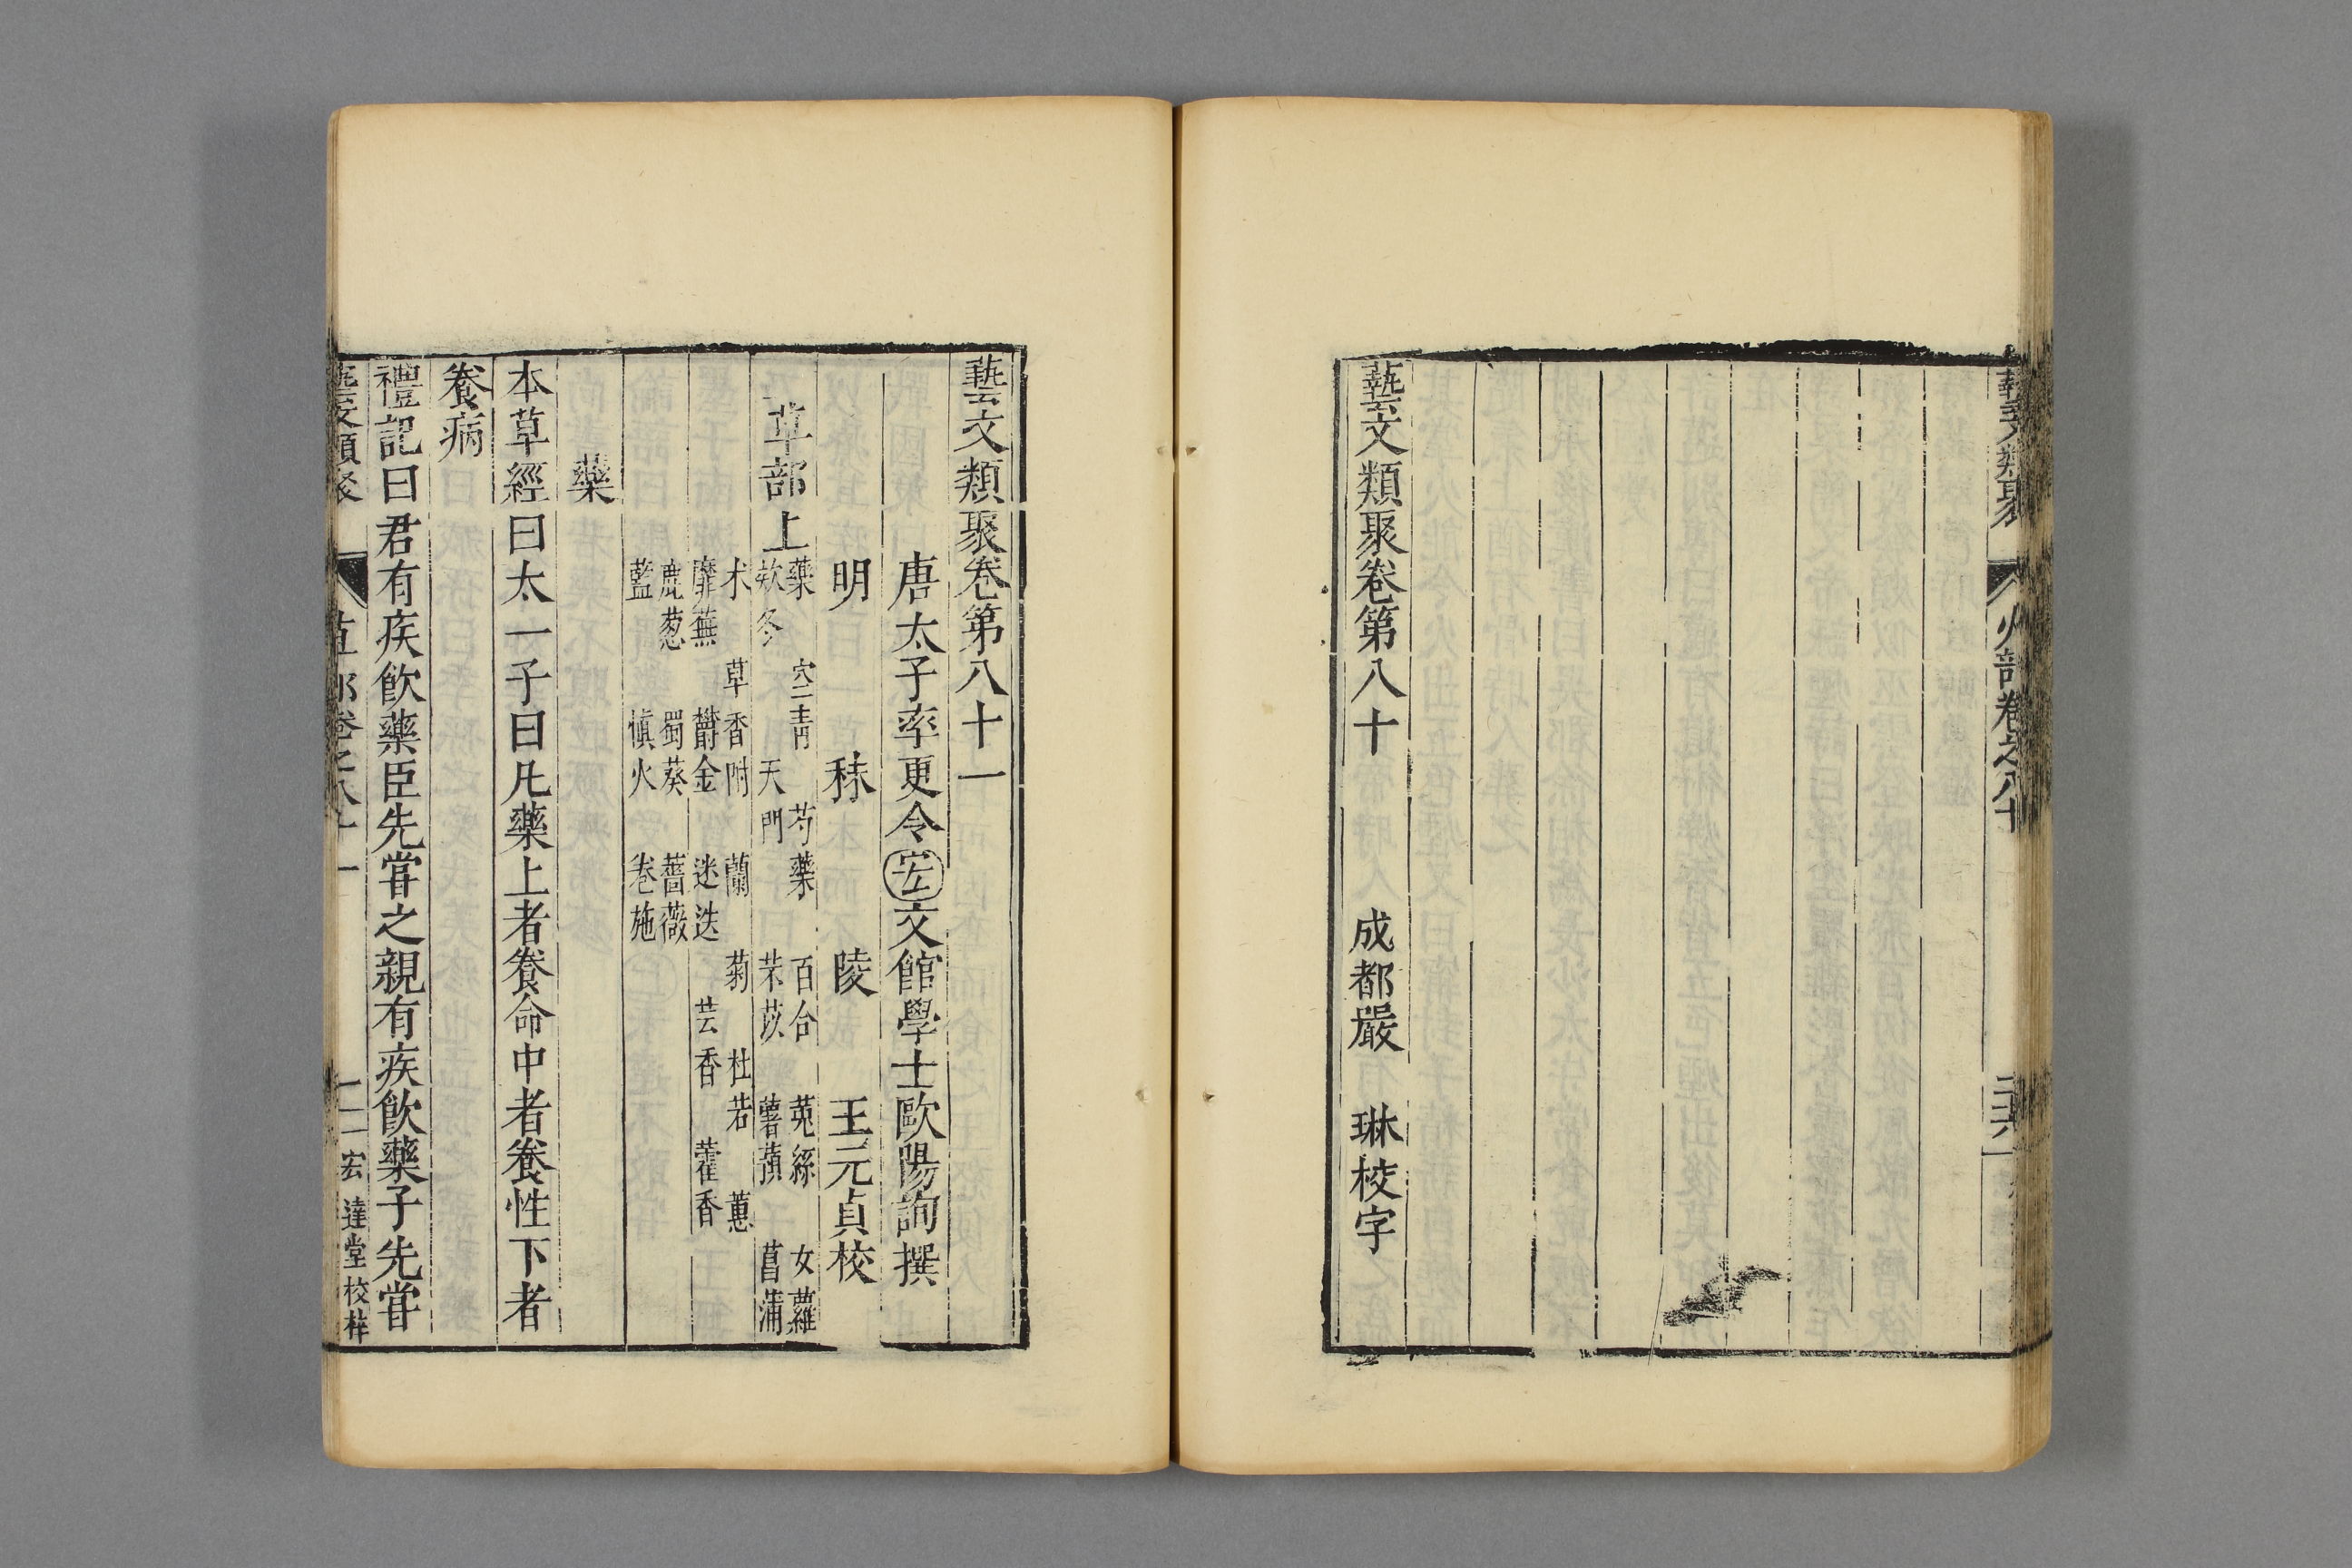 藝文類聚 火部卷之八十 三十六
藝文類聚卷第八十 成都嚴 琳校字
藝文類聚卷第八十一
唐太子率更令宏文館學士歐陽詢撰
明 秣 陵 王元貞校
草部上
藥 空青 芍藥 百合 菟絲 女蘿
欵冬 天門 芣苡 薯蕷 菖蒲
术 草香附 蘭 菊 杜若 蕙
蘼蕪 欝金 迷迭 芸香 藿香
鹿葱 蜀葵 薔薇
藍 慎火 卷施
藥
本草經曰太一子曰凡藥上者養命中者養性下者
養病
禮記曰君有疾飲藥臣先甞之親有疾飲藥子先甞
藝文類聚 草部卷之八十一 一 宏達堂校梓